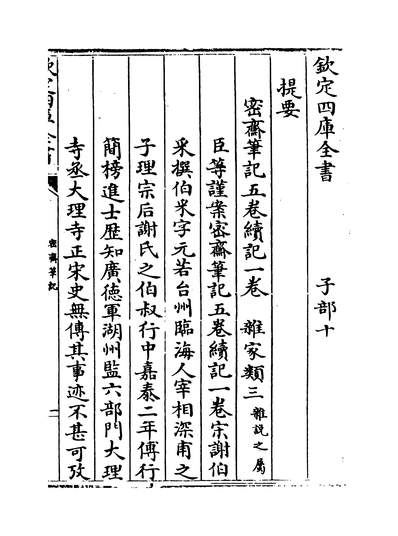 欽定四庫全書　子部十
提要
密齋筆記五卷續記一卷　雜家類三雜說之屬
臣等謹案密齋筆記五卷續記一卷宋謝伯
采撰伯采字元若台州臨海人宰相深甫之
子理宗后謝氏之伯叔行中嘉泰二年傅行
簡榜進士歴知廣德軍湖州監六部門大理
寺丞大理寺正宋史無傳其事迹不甚可攷
密齋筆記